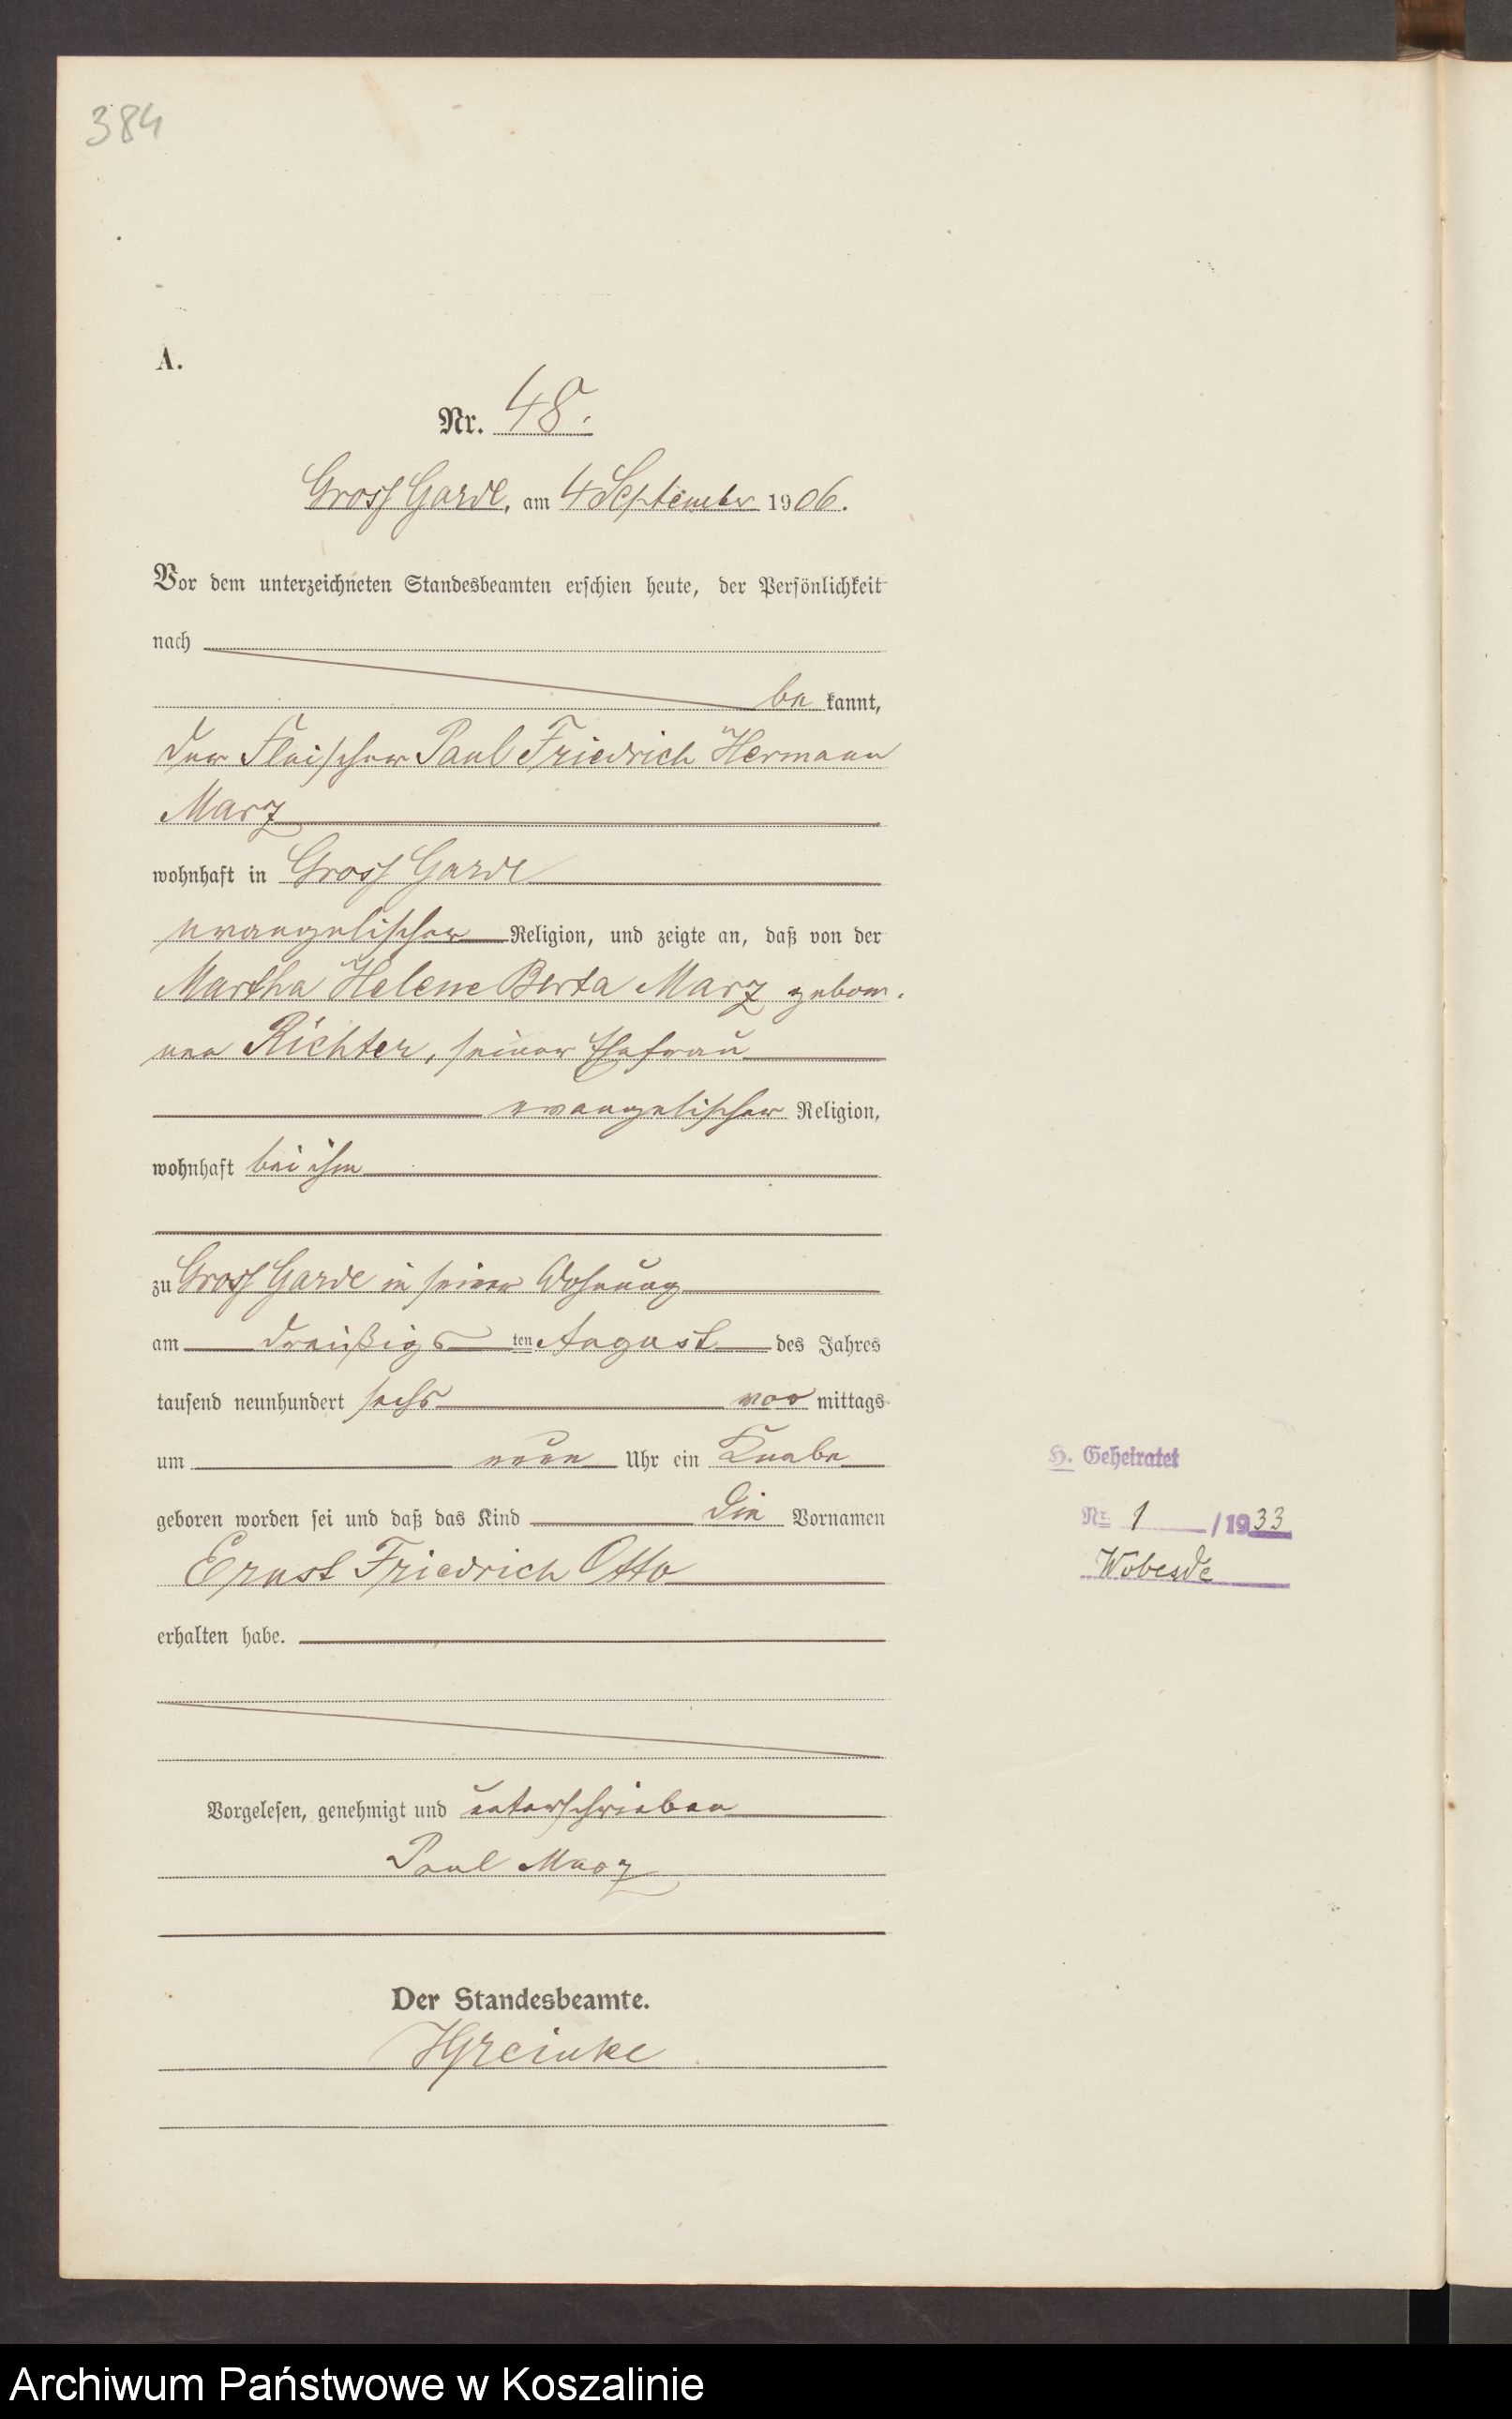 384
A.
Nr. 48.
Gross Garde, am 4 September 1906.
Vor dem unterzeichneten Standesbeamten erschien heute, der Persönlichkeit
nach
be kannt,
der Fleischer Paul Friedrich Hermann
Marz
wohnhaft in Gross Garde
evangelischer Religion, und zeigte an, daß von der
Martha Helene Berta Marz gebor.
nen Richter, seiner Ehefrau
evangelischer Religion,
wohnhaft bei ihm
zu Gross Garde in seiner Wohnung
am dreißigs ten August des Jahres
tausend neunhundert sechs vor mittags
um neun Uhr ein Knabe
geboren worden sei und daß das Kind die Vornamen
Ernst Friedrich Otto
erhalten habe.
Vorgelesen, genehmigt und unterschrieben
Paul Marz
Der Standesbeamte.
H. Geheiratet
Nr. 1 / 1933
Wobesde
Archiwum Państwowe w Koszalinie